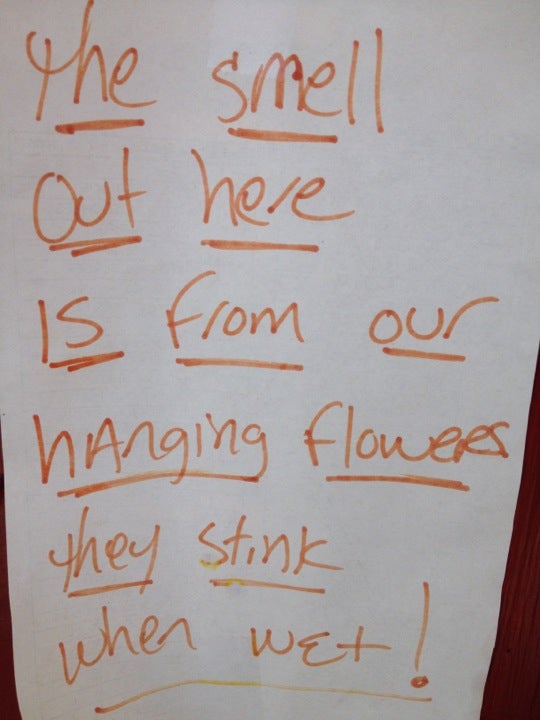 the smell
out here
is from our
hAnging flowers
they stink
when wet!